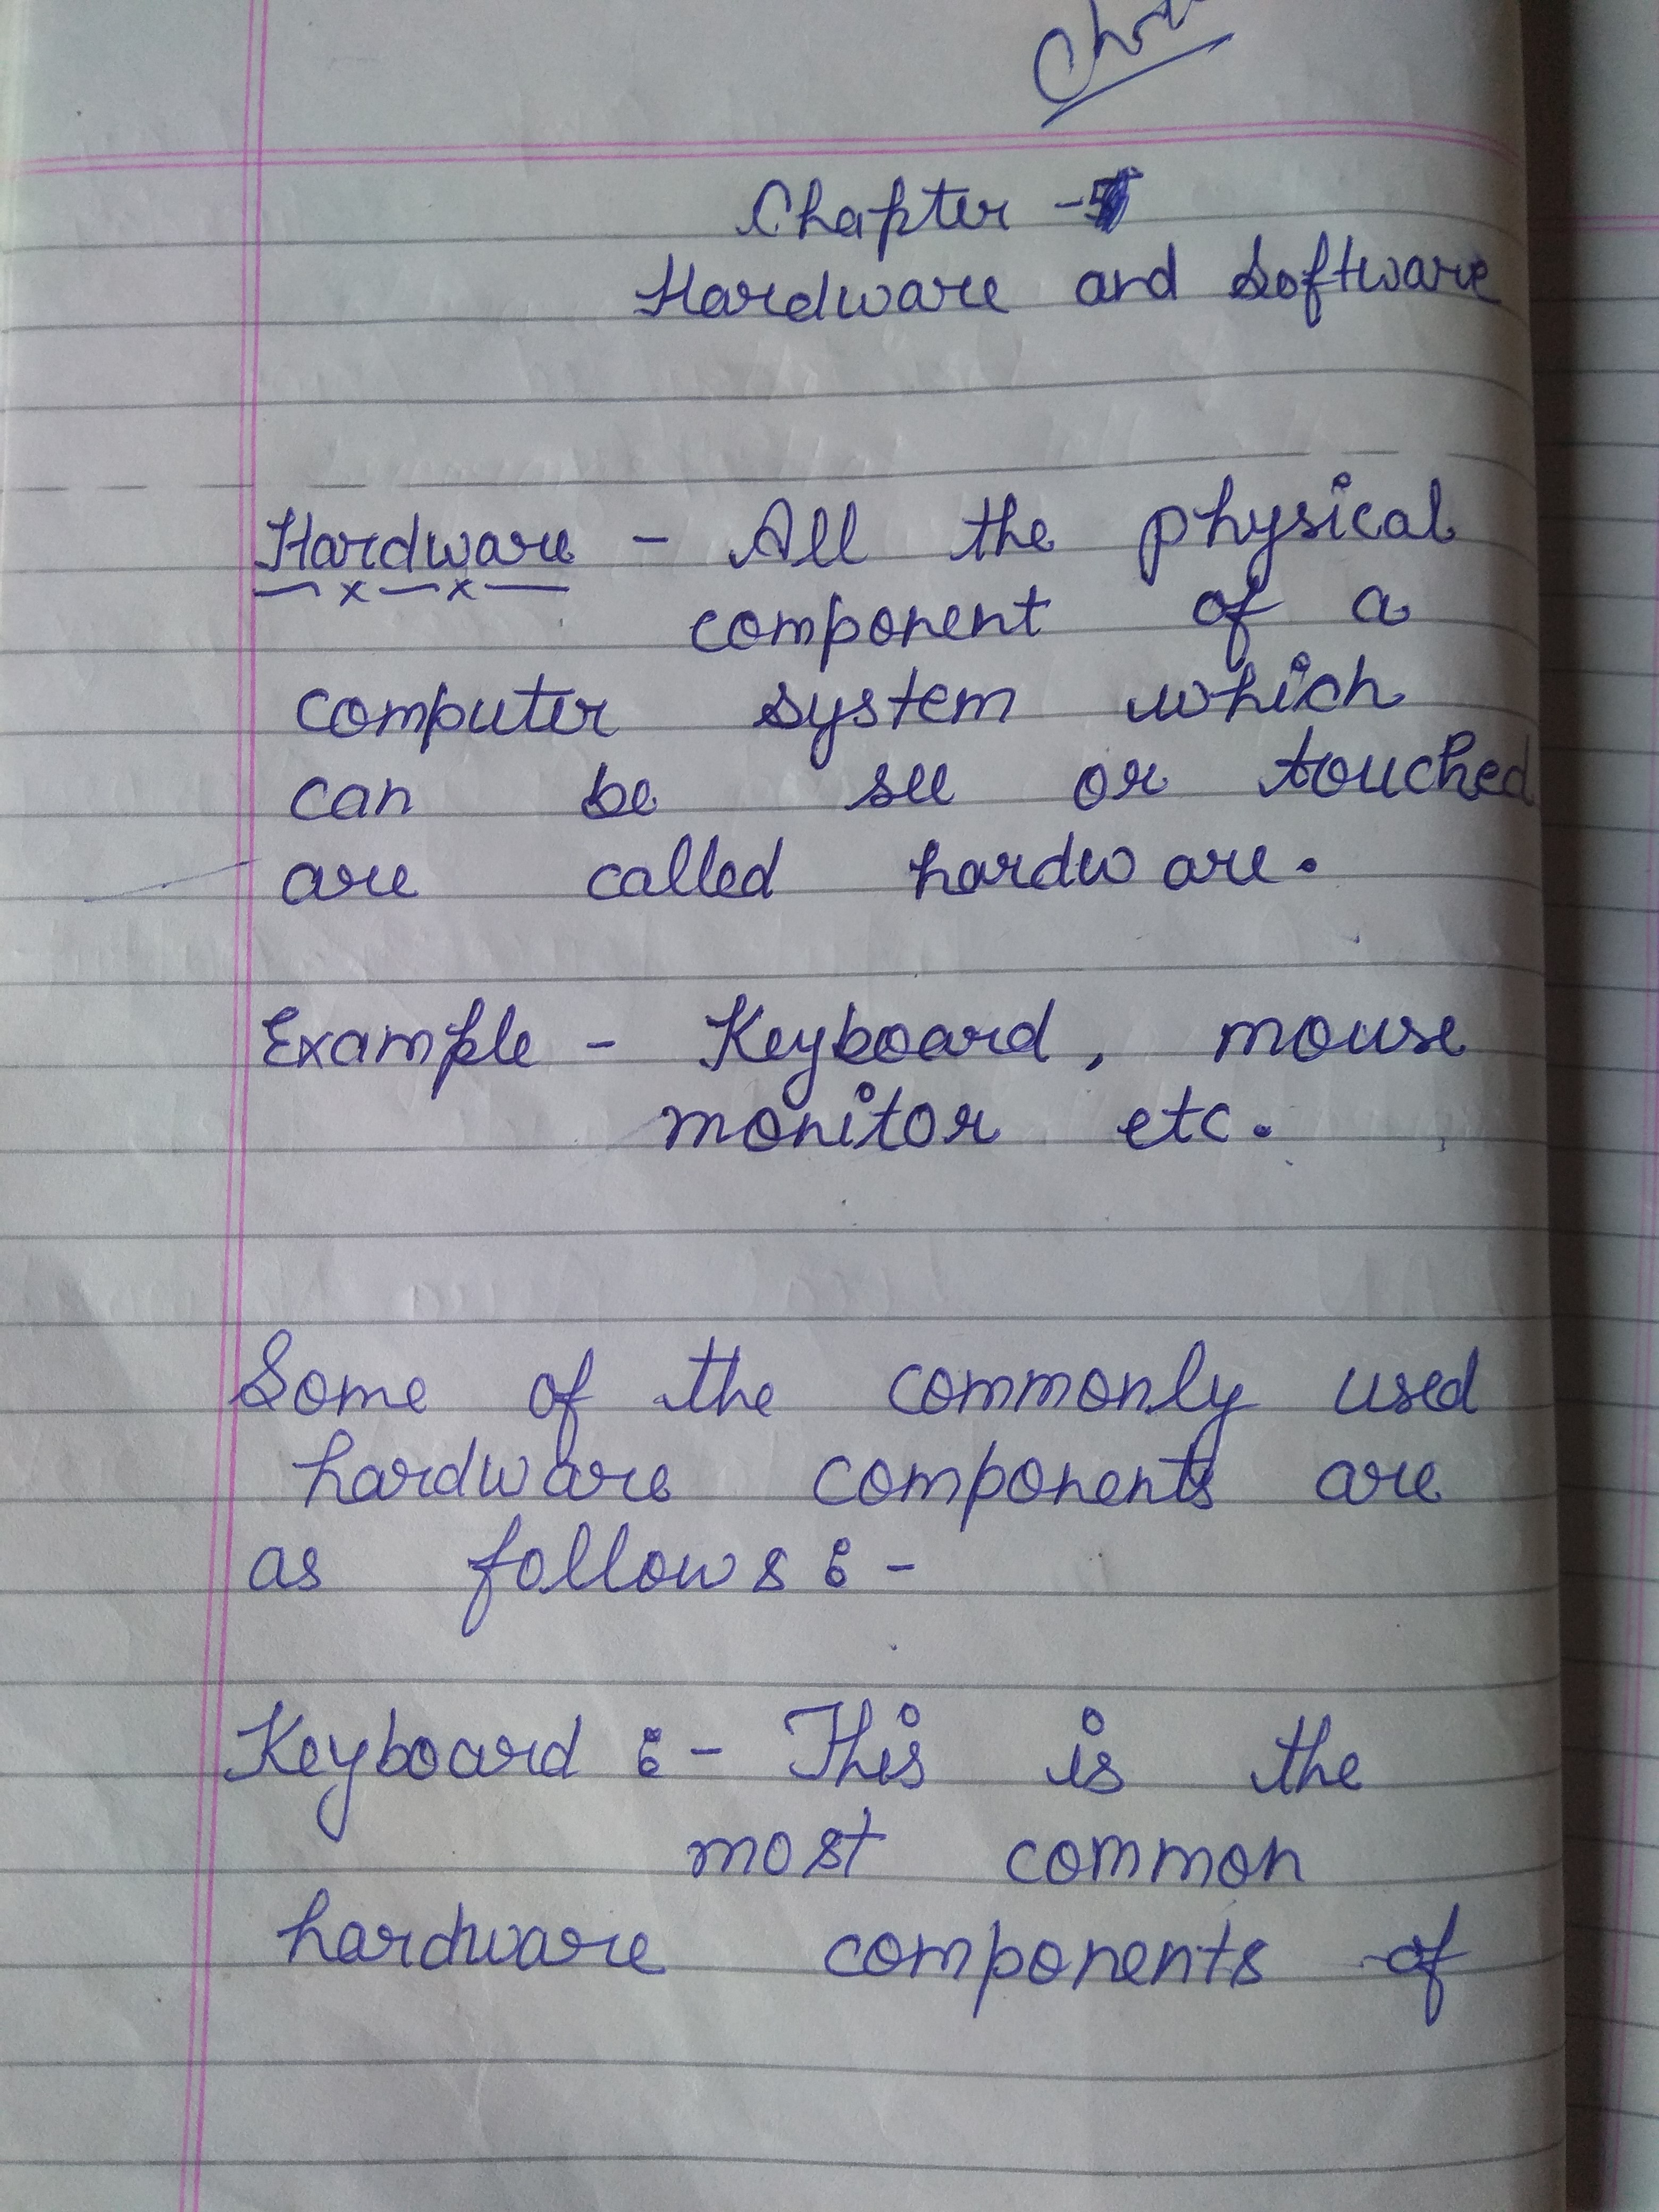 Chapter -
Hardware and Software
Hardware - All the physical
component of a
computer system which
can be see or touched
are called hardware.
Example - Keyboard, mouse
monitor etc.
Some of the commonly used
hardware components are
as follows :-
Keyboard :- This is the
most common
hardware components of